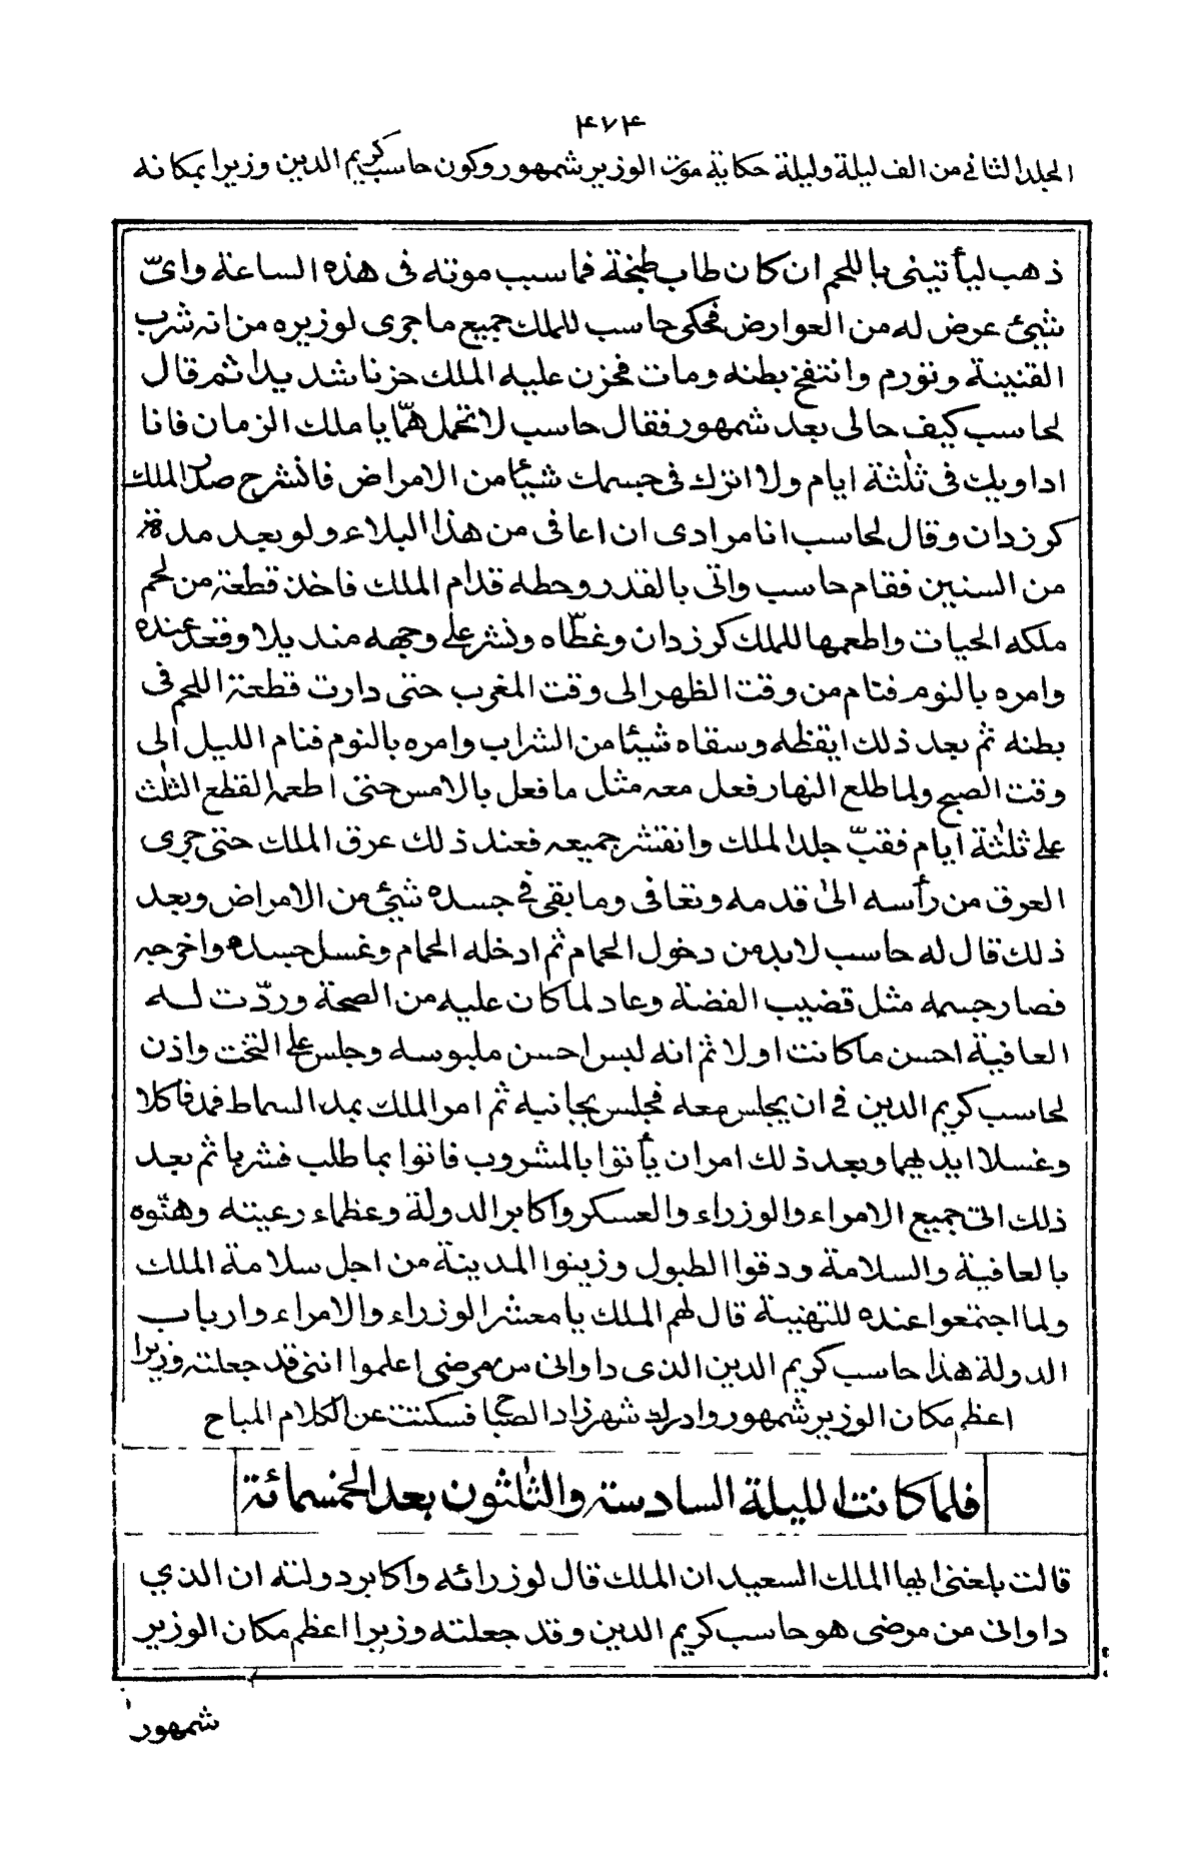 ۴۷۴
المجلد الثانى من الف ليلة وليلة حكاية موت الوزير شمهور وكون حاسب كريم الدين وزيرا بمكانه
ذهب ليأتينى باللحم ان كان طاب طبخة فما سبب موته فى هذه الساعة واىّ
شيئ عرض له من العوارض فحكى حاسب للملك جميع ما جرى لوزيره من انه شرب
القنينة وتورم وانتفخ بطنه ومات فحزن عليه الملك حزنا شديدا ثم قال
لحاسب كيف حالى بعد شمهور فقال حاسب لا تحمل همّا يا ملك الزمان فانا
اداويك فى ثلثة ايام ولا اترك فى جسمك شيئا من الامراض فانشرح صدر الملك
كرزدان وقال لحاسب انا مرادى ان اعافى من هذا البلاء ولو بعد مدة
من السنين فقام حاسب واتى بالقدر وحطه قدام الملك فاخذ قطعة من لحم
ملكه الحيات واطعمها للملك كرزدان وغطّاه ونشر على وجهه منديلا وقعد عنده
وامره بالنوم فنام من وقت الظهر الى وقت المغرب حتى دارت قطعة اللحم فى
بطنه ثم بعد ذلك ايقظه وسقاه شيئا من الشراب وامره بالنوم فنام الليل الى
وقت الصبح ولما طلع النهار فعل معه مثل ما فعل بالامس حتى اطعمه القطع الثلث
على ثلثة ايام فقبّ جلد الملك وانقشر جميعه فعند ذلك عرق الملك حتى جرى
العرق من رأسه الى قدمه وتعافى وما بقى فى جسده شيئ من الامراض وبعد
ذلك قال له حاسب لا بد من دخول الحمام ثم ادخله الحمام وغسل جسده واخرجه
فصار جسمه مثل قضيب الفضة وعاد لما كان عليه من الصحة وردّت له
العافية احسن ما كانت اولا ثم انه لبس احسن ملبوسه وجلس على التخت واذن
لحاسب كريم الدين فى ان يجلس معه فجلس بجانبه ثم امر الملك بمد السماط فمد فاكلا
وغسلا ايديهما وبعد ذلك امر ان يأتوا بالمشروب فاتوا بما طلب فشربا ثم بعد
ذلك اتى جميع الامراء والوزراء والعسكر واكابر الدولة وعظماء رعيته وهنّوه
بالعافية والسلامة ودقوا الطبول وزينوا المدينة من اجل سلامة الملك
ولما اجتمعوا عنده للتهنية قال لهم الملك يا معشر الوزراء والامراء وارباب
الدولة هذا حاسب كريم الدين الذى داوانى من مرضى اعلموا اننى قد جعلته وزيرا
اعظم مكان الوزير شمهور وادرك شهرزاد الصباح فسكتت عن الكلام المباح
فلما كانت الليلة السادسة والثلثون بعد الخمسمائة
قالت بلغنى ايها الملك السعيد ان الملك قال لوزرائه واكابر دولته ان الذي
داوانى من مرضى هو حاسب كريم الدين وقد جعلته وزيرا اعظم مكان الوزير
شمهور